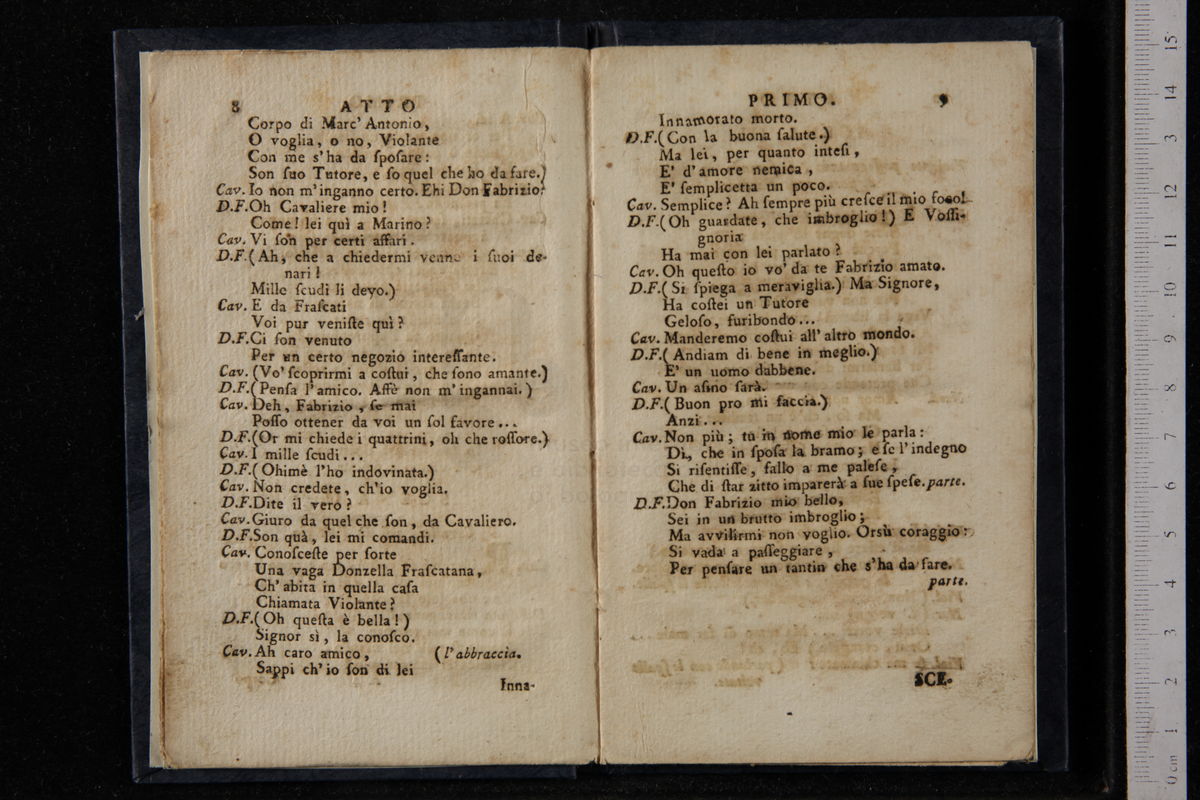 8 ATTO
Corpo di Marc' Antonio,
O voglia, o no, Violante
Con me s'ha da ſpoſare:
Son ſuo Tutore, e ſo quel che ho da fare.)
Cav. Io non m'inganno certo. Ehi Don Fabrizio?
D.F. Oh Cavaliere mio!
Come! lei quì a Marino?
Cav. Vi ſon per certi affari.
D.F. (Ah, che a chiedermi venne i ſuoi de-
nari!
Mille ſcudi li devo.)
Cav. E da Fraſcati
Voi pur veniſte quì?
D.F. Ci ſon venuto
Per un certo negozio intereſſante.
Cav. (Vo' ſcoprirmi a coſtui, che ſono amante.)
D.F. (Penſa l'amico. Affè non m'ingannai.)
Cav. Deh, Fabrizio, ſe mai
Poſſo ottener da voi un ſol favore...
D.F. (Or mi chiede i quattrini, oh che roſſore.)
Cav. I mille ſcudi...
D.F. (Ohimè l'ho indovinata.)
Cav. Non credete, ch'io voglia.
D.F. Dite il vero?
Cav. Giuro da quel che ſon, da Cavaliero.
D.F. Son quà, lei mi comandi.
Cav. Conoſceſte per ſorte
Una vaga Donzella Fraſcatana,
Ch'abita in quella caſa
Chiamata Violante?
D.F. (Oh queſta è bella!)
Signor sì, la conoſco.
Cav. Ah caro amico, (l'abbraccia.
Sappi ch'io ſon di lei
Inna-
PRIMO. 9
Innamorato morto.
D.F. (Con la buona ſalute.)
Ma lei, per quanto inteſi,
E' d'amore nemica,
E' ſemplicetta un poco.
Cav. Semplice? Ah ſempre più creſce il mio foco!
D.F. (Oh guardate, che imbroglio!) E Voſſi-
gnoria
Ha mai con lei parlato?
Cav. Oh queſto io vo' da te Fabrizio amato.
D.F. (Si ſpiega a meraviglia.) Ma Signore,
Ha coſtei un Tutore
Geloſo, furibondo...
Cav. Manderemo coſtui all'altro mondo.
D.F. (Andiam di bene in meglio.)
E' un uomo dabbene.
Cav. Un aſino ſarà.
D.F. (Buon pro mi faccia.)
Anzi...
Cav. Non più; tu in nome mio le parla:
Di, che in ſpoſa la bramo; e ſe l'indegno
Si riſentiſſe, fallo a me paleſe,
Che di ſtar zitto imparerà a ſue ſpeſe. parte.
D.F. Don Fabrizio mio bello,
Sei in un brutto imbroglio;
Ma avvilirmi non voglio. Orsù coraggio:
Si vada a paſſeggiare,
Per penſare un tantin che s'ha da fare.
parte.
SCE-
0 cm 1 2 3 4 5 6 7 8 9 10 11 12 13 14 15